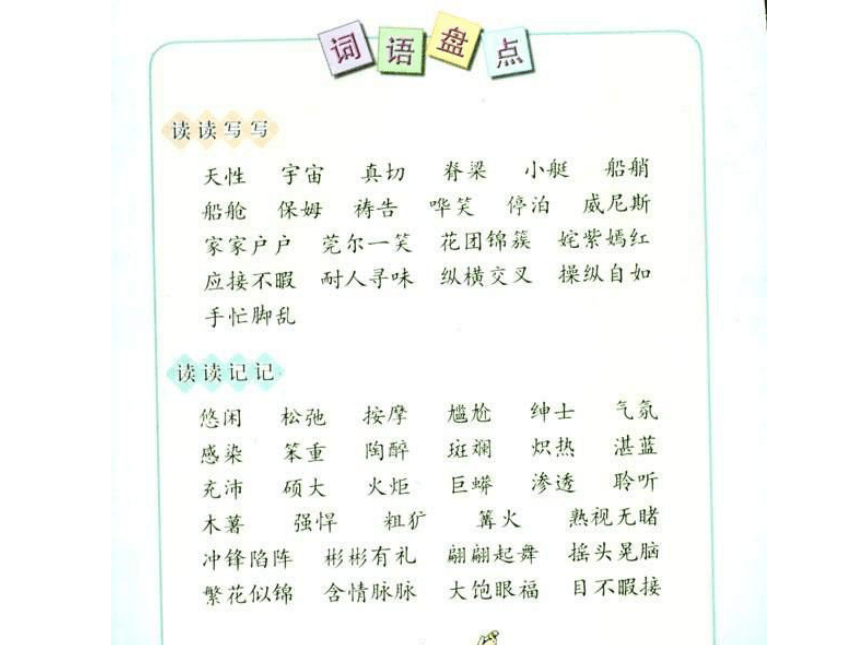 词语盘点
读读写写
天性 宇宙 真切 脊梁 小艇 船艄
船舱 保姆 祷告 哗笑 停泊 威尼斯
家家户户 莞尔一笑 花团锦簇 姹紫嫣红
应接不暇 耐人寻味 纵横交叉 操纵自如
手忙脚乱
读读记记
悠闲 松弛 按摩 尴尬 绅士 气氛
感染 笨重 陶醉 斑斓 炽热 湛蓝
充沛 硕大 火炬 巨蟒 渗透 聆听
木薯 强悍 粗犷 篝火 熟视无睹
冲锋陷阵 彬彬有礼 翩翩起舞 摇头晃脑
繁花似锦 含情脉脉 大饱眼福 目不暇接